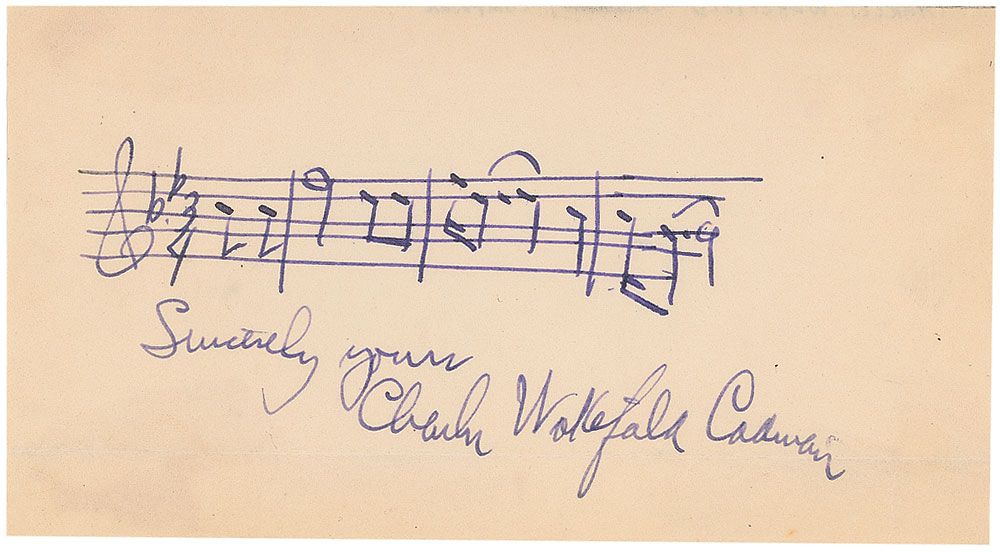 3
4
Sincerely yours
Charles Wakefield Cadman